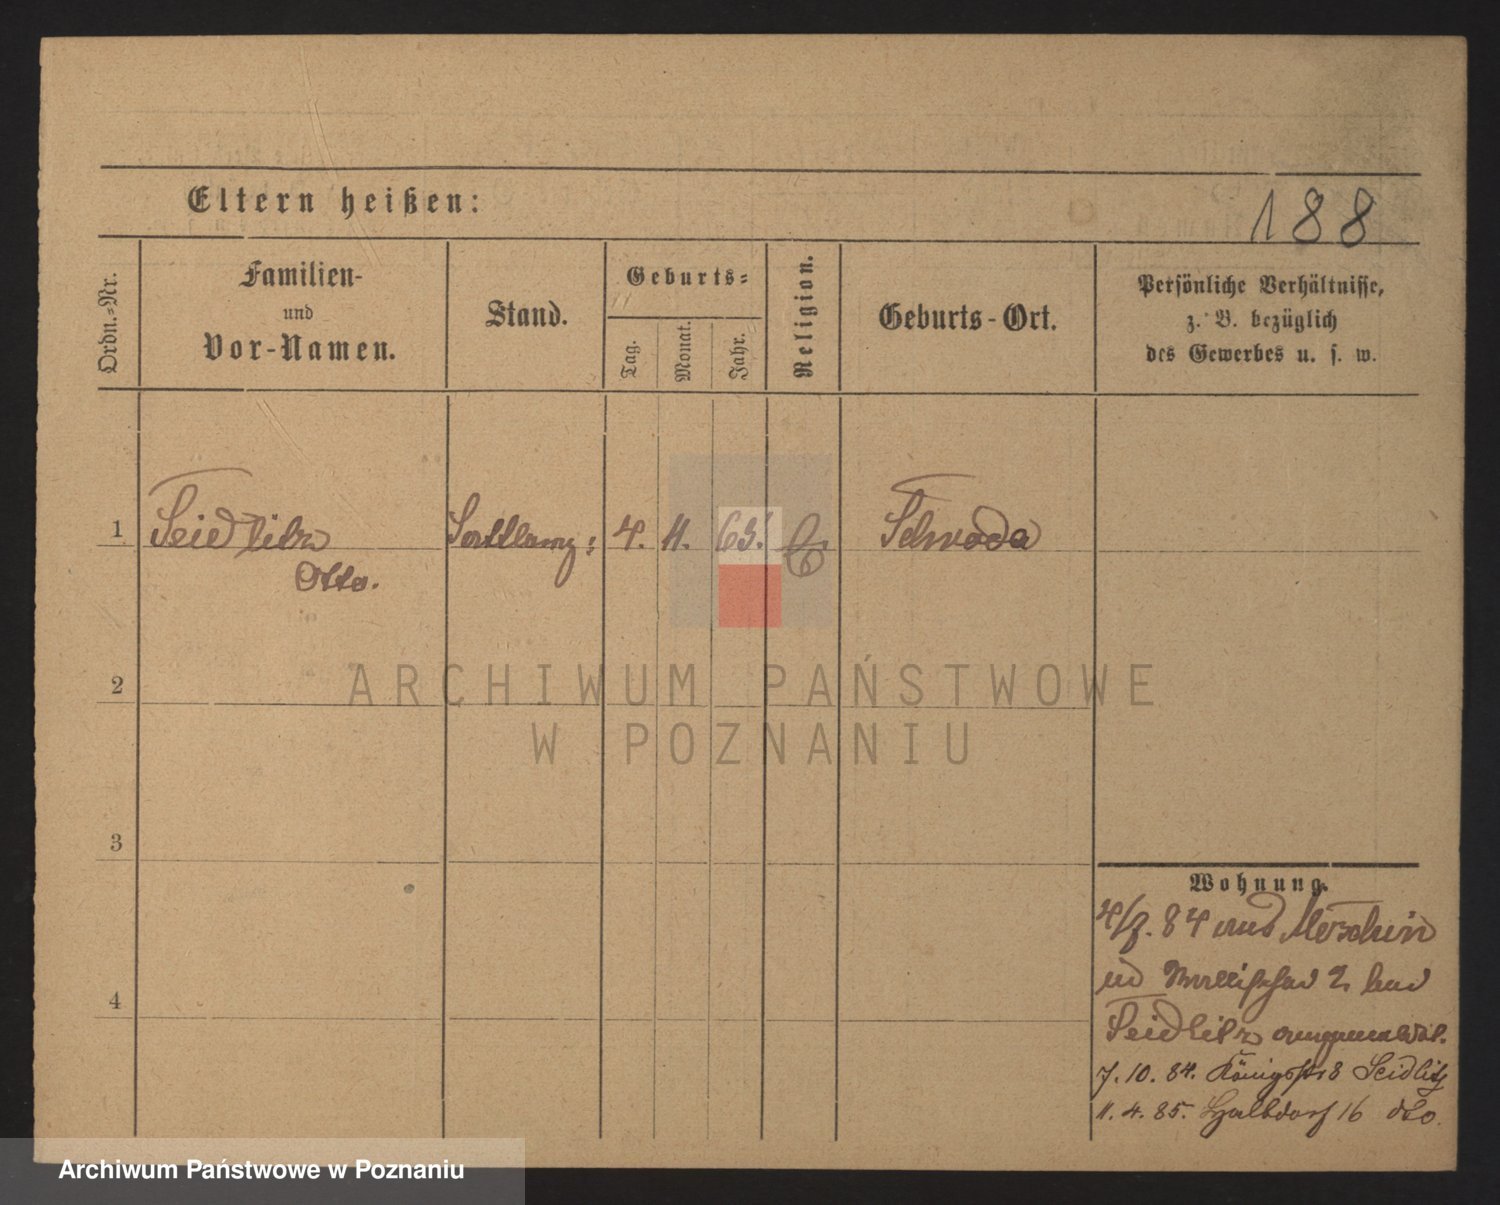 Eltern heißen:
188
Ordn.=Nr.
Familien-
und
Vor-Namen.
Stand.
Geburts=
Tag.
Monat.
Jahr.
Religion.
Geburts-Ort.
Persönliche Verhältnisse,
z. B. bezüglich
des Gewerbes u. s. w.
1 Seidlitz 4. 11. 65. Schroda
Otto.
2
3
4
Wohnung.
84 aus
2 bei
Seidlitz angemeldet.
7. 10. 84. Königsstr 8 Seidlitz
11. 4. 85. Halbdorf 16 dto.
ARCHIWUM PAŃSTWOWE
W POZNANIU
Archiwum Państwowe w Poznaniu